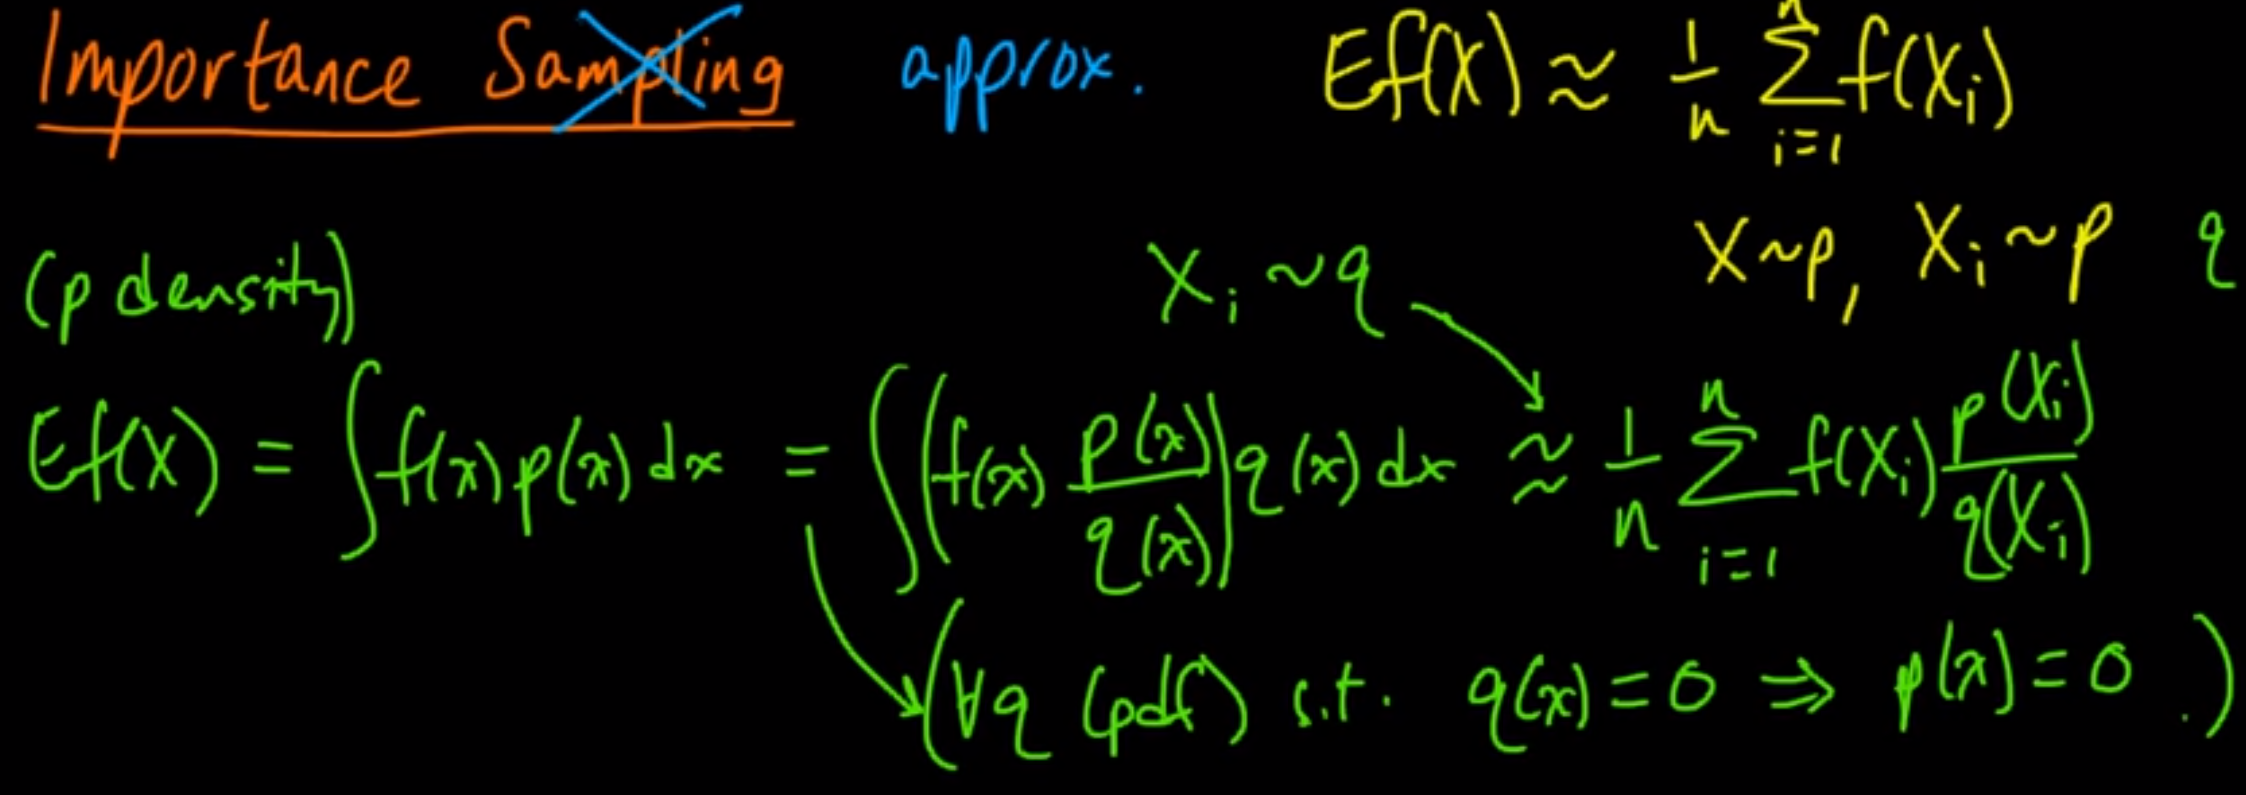 Importance Sampling approx. Ef(X) ≈ 1/n Σ_{i=1}^{n} f(X_i)
X~p, X_i~p q
(p density) X_i ~ q
Ef(X) = ∫f(x)p(x)dx = ∫(f(x) p(x)/q(x)) q(x)dx ≈ 1/n Σ_{i=1}^{n} f(X_i) p(X_i)/q(X_i)
(∀q (pdf) s.t. q(x)=0 ⇒ p(x)=0 .)